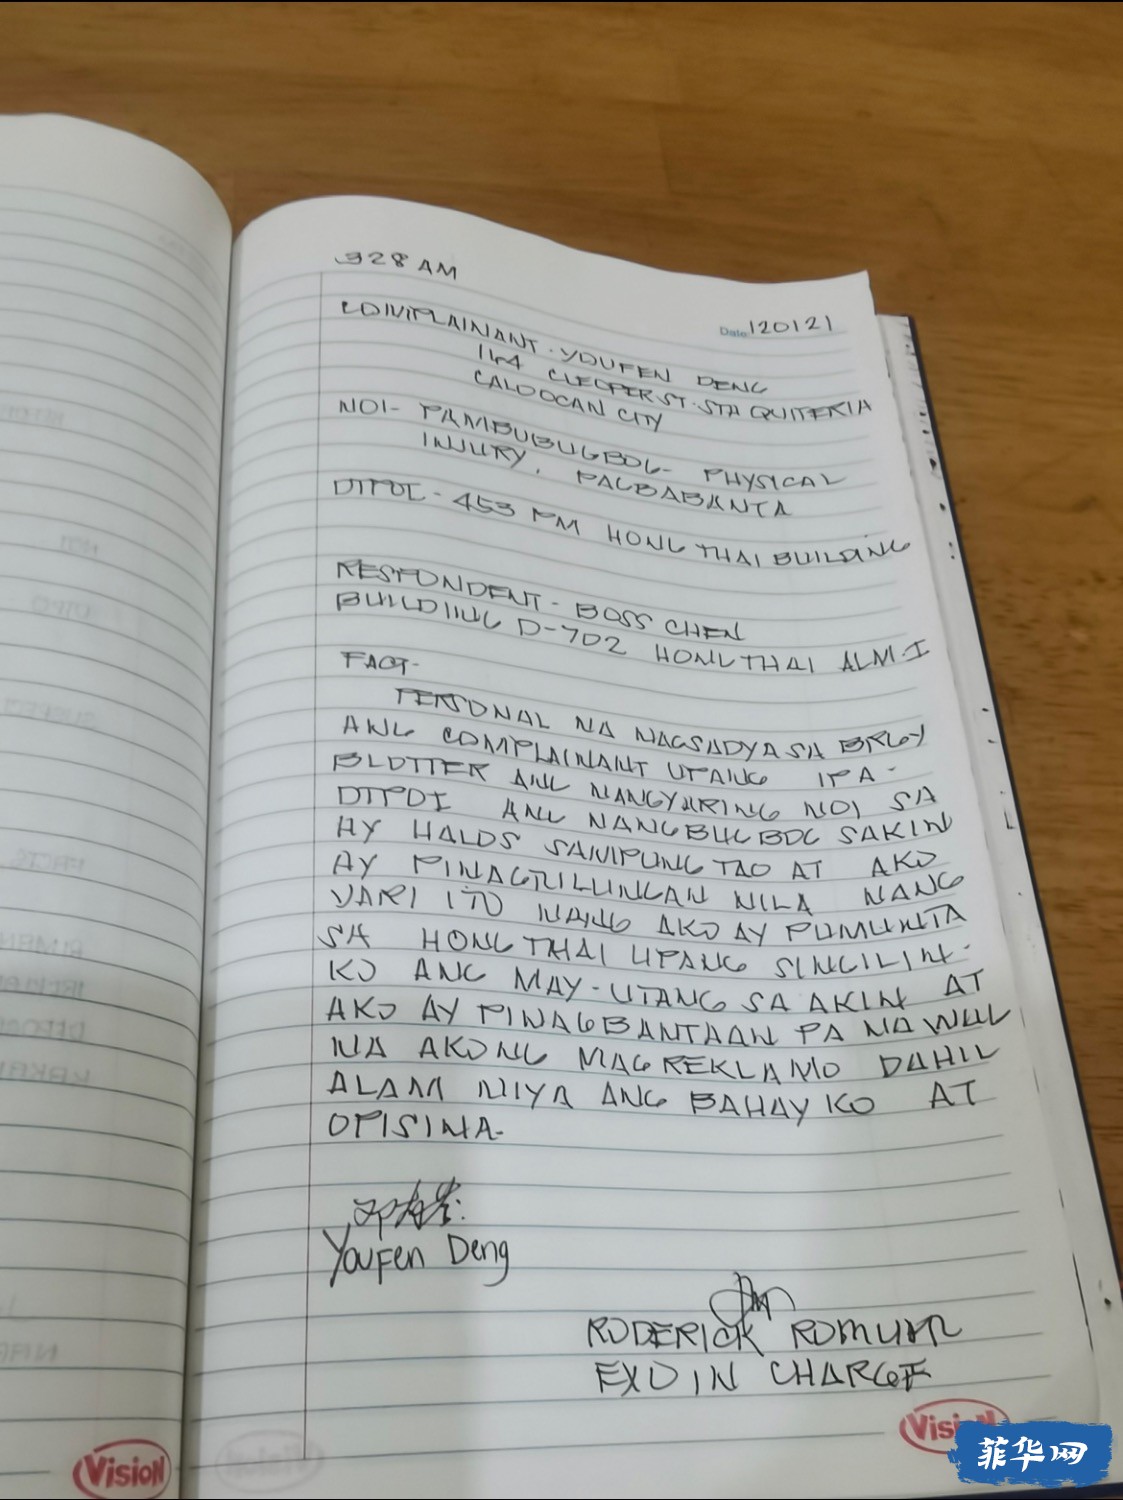 328 AM
Date 120121
COMPLAINANT - YOUFEN DENG
144 CLEOFER ST. STA QUITERIA
CALOOCAN CITY
NOI - PAMBUBUGBOG - PHYSICAL
INJURY, PAGBABANTA
DTPOI - 453 PM HONG THAI BUILDING
RESPONDENT - BOSS CHEN
BUILDIING D-702 HONG THAI ALM-I
FACT -
PERSONAL NA NAGSADYA SA BRGY
ANG COMPLAINANT UPANG IPA-
BLOTTER ANG NANGYARING NOI SA
DTPOI ANG NANGBUGBOG SAKIN
AY HALOS SAMPUNG TAO AT AKO
AY PINAGTULUNGAN NILA NANG
YARI ITO NANG AKO AY PUMUNTA
SA HONG THAI UPANG SINGILIN
KO ANG MAY-UTANG SA AKIN AT
AKO AY PINAGBANTAAN PA NA WAG
NA AKONG MAGREKLAMO DAHIL
ALAM NIYA ANG BAHAY KO AT
OPISINA.
邓有芬
Youfen Deng
RODERICK
EXO IN CHARGE
Vision
Vision
菲华网